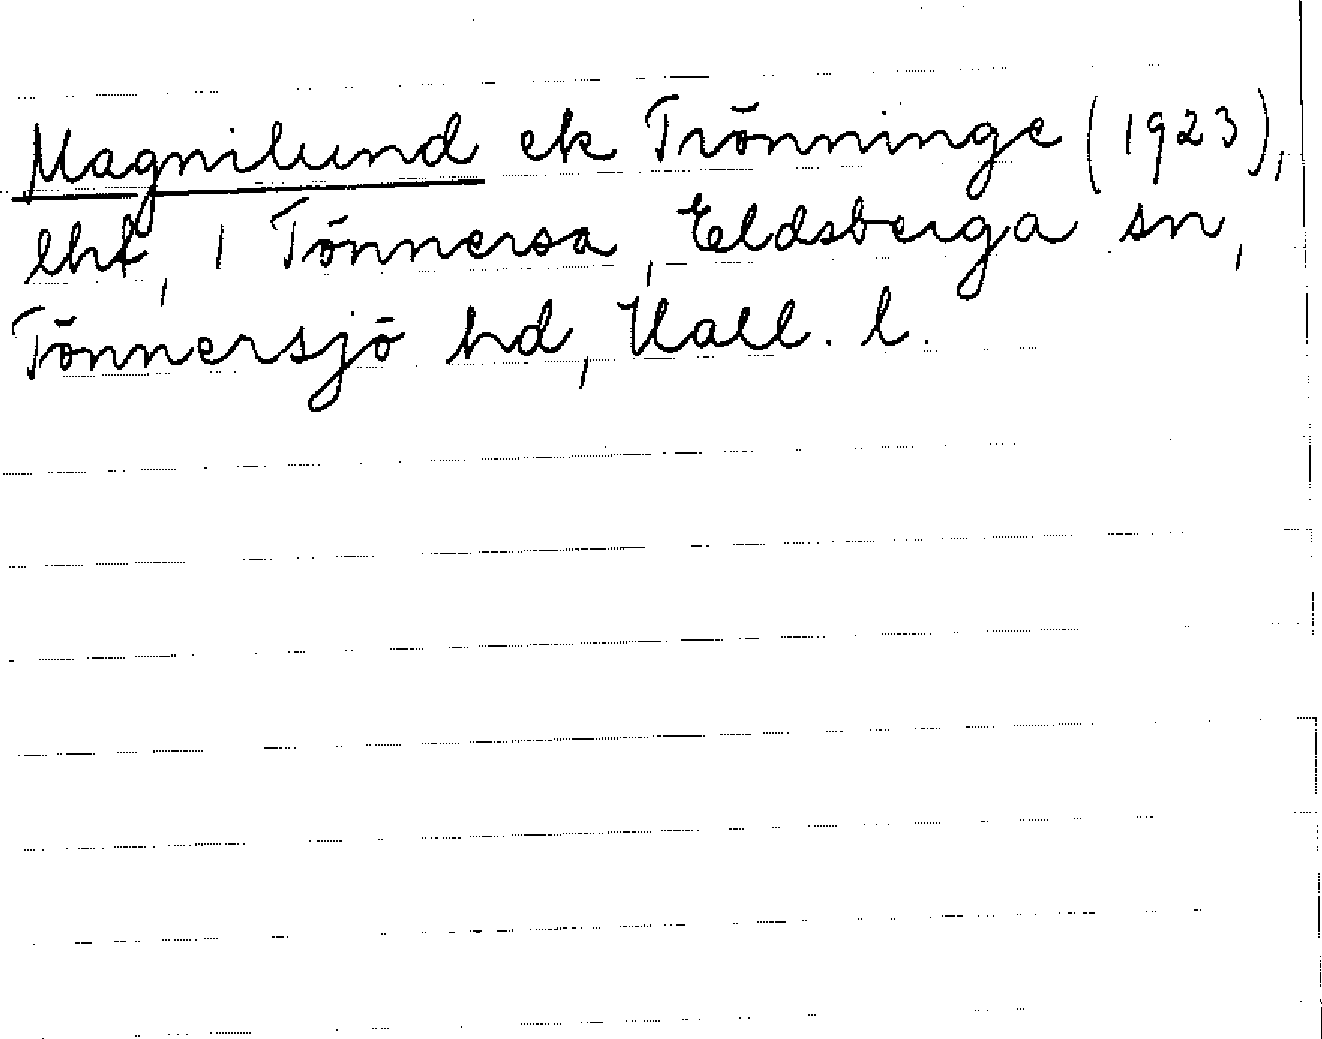 Magnilund ek Trönninge (1923),
lht, 1 Tönnersa, Eldsberga sn,
Tönnersjö hd, Hall. l.